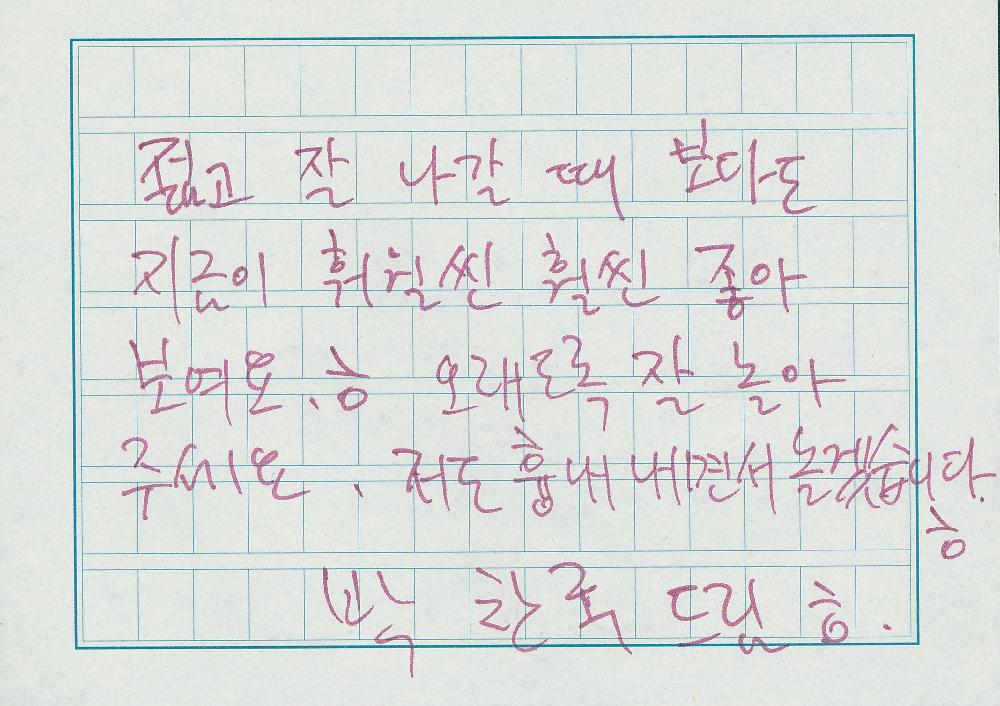 젊고 잘 나갈 때 보다도
지금이 훠월씬 훨씬 좋아
보여요. ㅎ 오래도록 잘 놀아
주세요. 저도 흉내 내면서 놀겠습니다.
ㅎ
박 찬 록 드림 ㅎ.